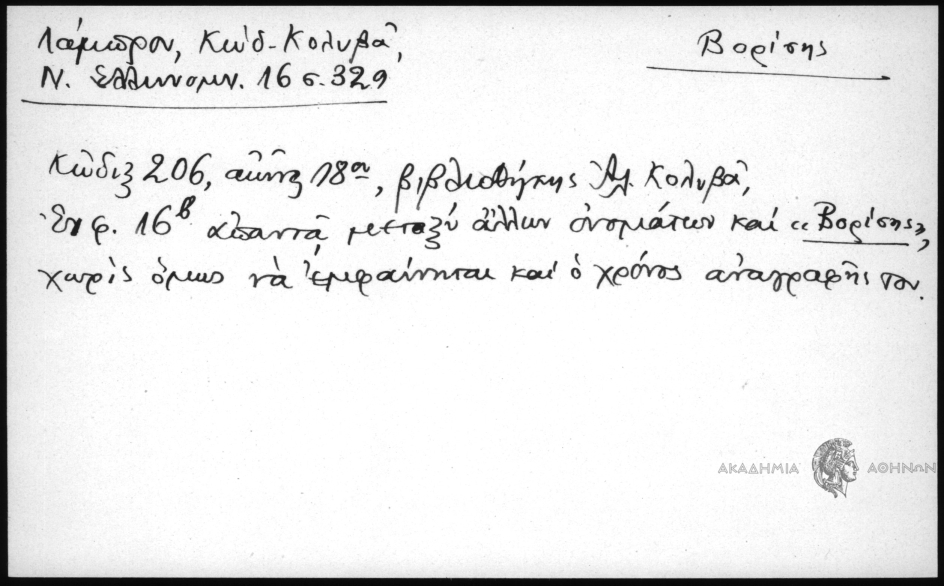 Λάμπρου, Κώδ. Κολυβᾶ,
Ν. Ἑλληνομν. 16 σ. 329
Βορίσης
Κῶδιξ 206, αἰῶνος 18ου, βιβλιοθήκης Ἀλ. Κολυβᾶ,
Ἐν φ. 16β ἀπαντᾷ μεταξὺ ἄλλων ὀνομάτων καὶ «Βορίσης»,
χωρὶς ὅμως νὰ ἐμφαίνηται καὶ ὁ χρόνος ἀναγραφῆς του.
ΑΚΑΔΗΜΙΑ ΑΘΗΝΩΝ